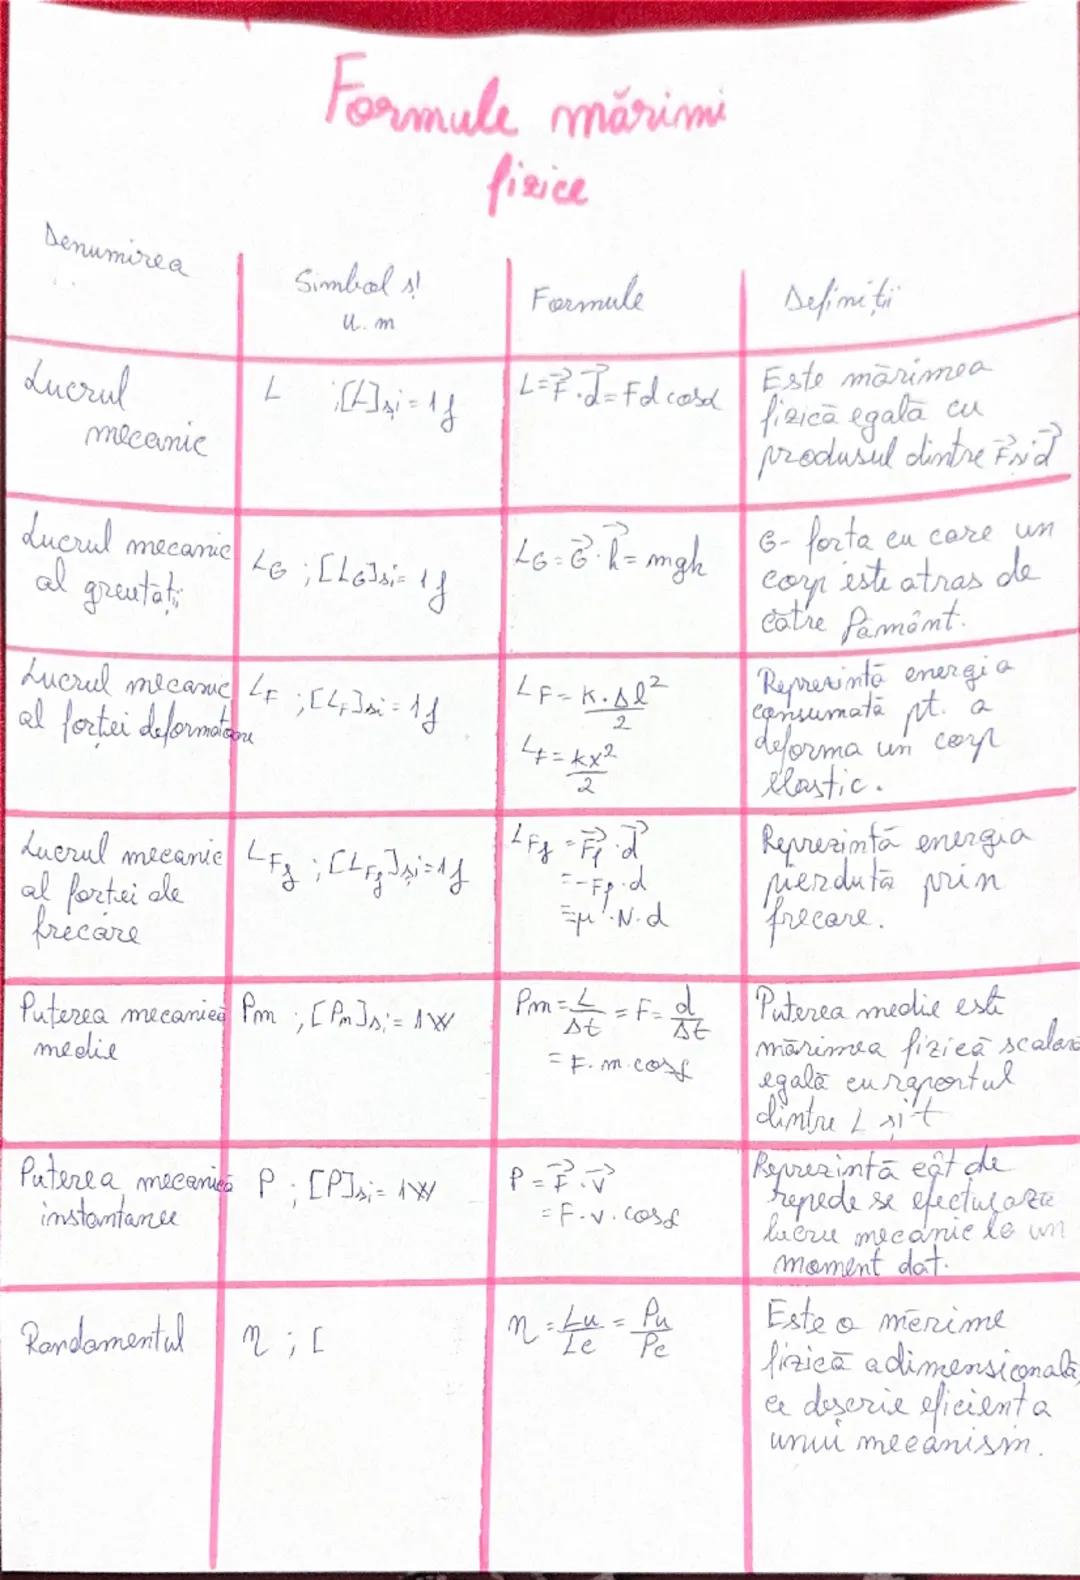 Formule mărimi
fizice
Denumirea
Simbol și
u. m
Formule
Definiții
Lucrul
mecanic
L ; [L]si = 1J
L = F⃗ · d⃗ = Fd cosα
Este mărimea
fizică egală cu
produsul dintre F⃗ și d⃗
Lucrul mecanic
al greutății
LG ; [LG]si = 1J
LG = G⃗ · h⃗ = mgh
G - forta cu care un
corp este atras de
către Pământ.
Lucrul mecanic
al forței deformatoare
LF ; [LF]si = 1J
LF = K·Δl²/2
Lf = kx²/2
Reprezintă energia
consumată pt. a
deforma un corp
elastic.
Lucrul mecanic
al forței de
frecare
LFf ; [LFf]si = 1J
LFf = F⃗f · d⃗
= -Ff · d
= μ · N · d
Reprezintă energia
pierdută prin
frecare.
Puterea mecanică
medie
Pm ; [Pm]si = 1W
Pm = L/Δt = F = d/Δt
= F · m · cosα
Puterea medie este
mărimea fizică scalară
egală cu raportul
dintre L și t
Puterea mecanică
instantanee
P ; [P]si = 1W
P = F⃗ · v⃗
= F · v · cosα
Reprezintă cât de
repede se efectuează
lucru mecanic la un
moment dat.
Randamentul
η ; [
η = Lu/Lc = Pu/Pc
Este o mărime
fizică adimensională,
ce descrie eficienta
unui mecanism.